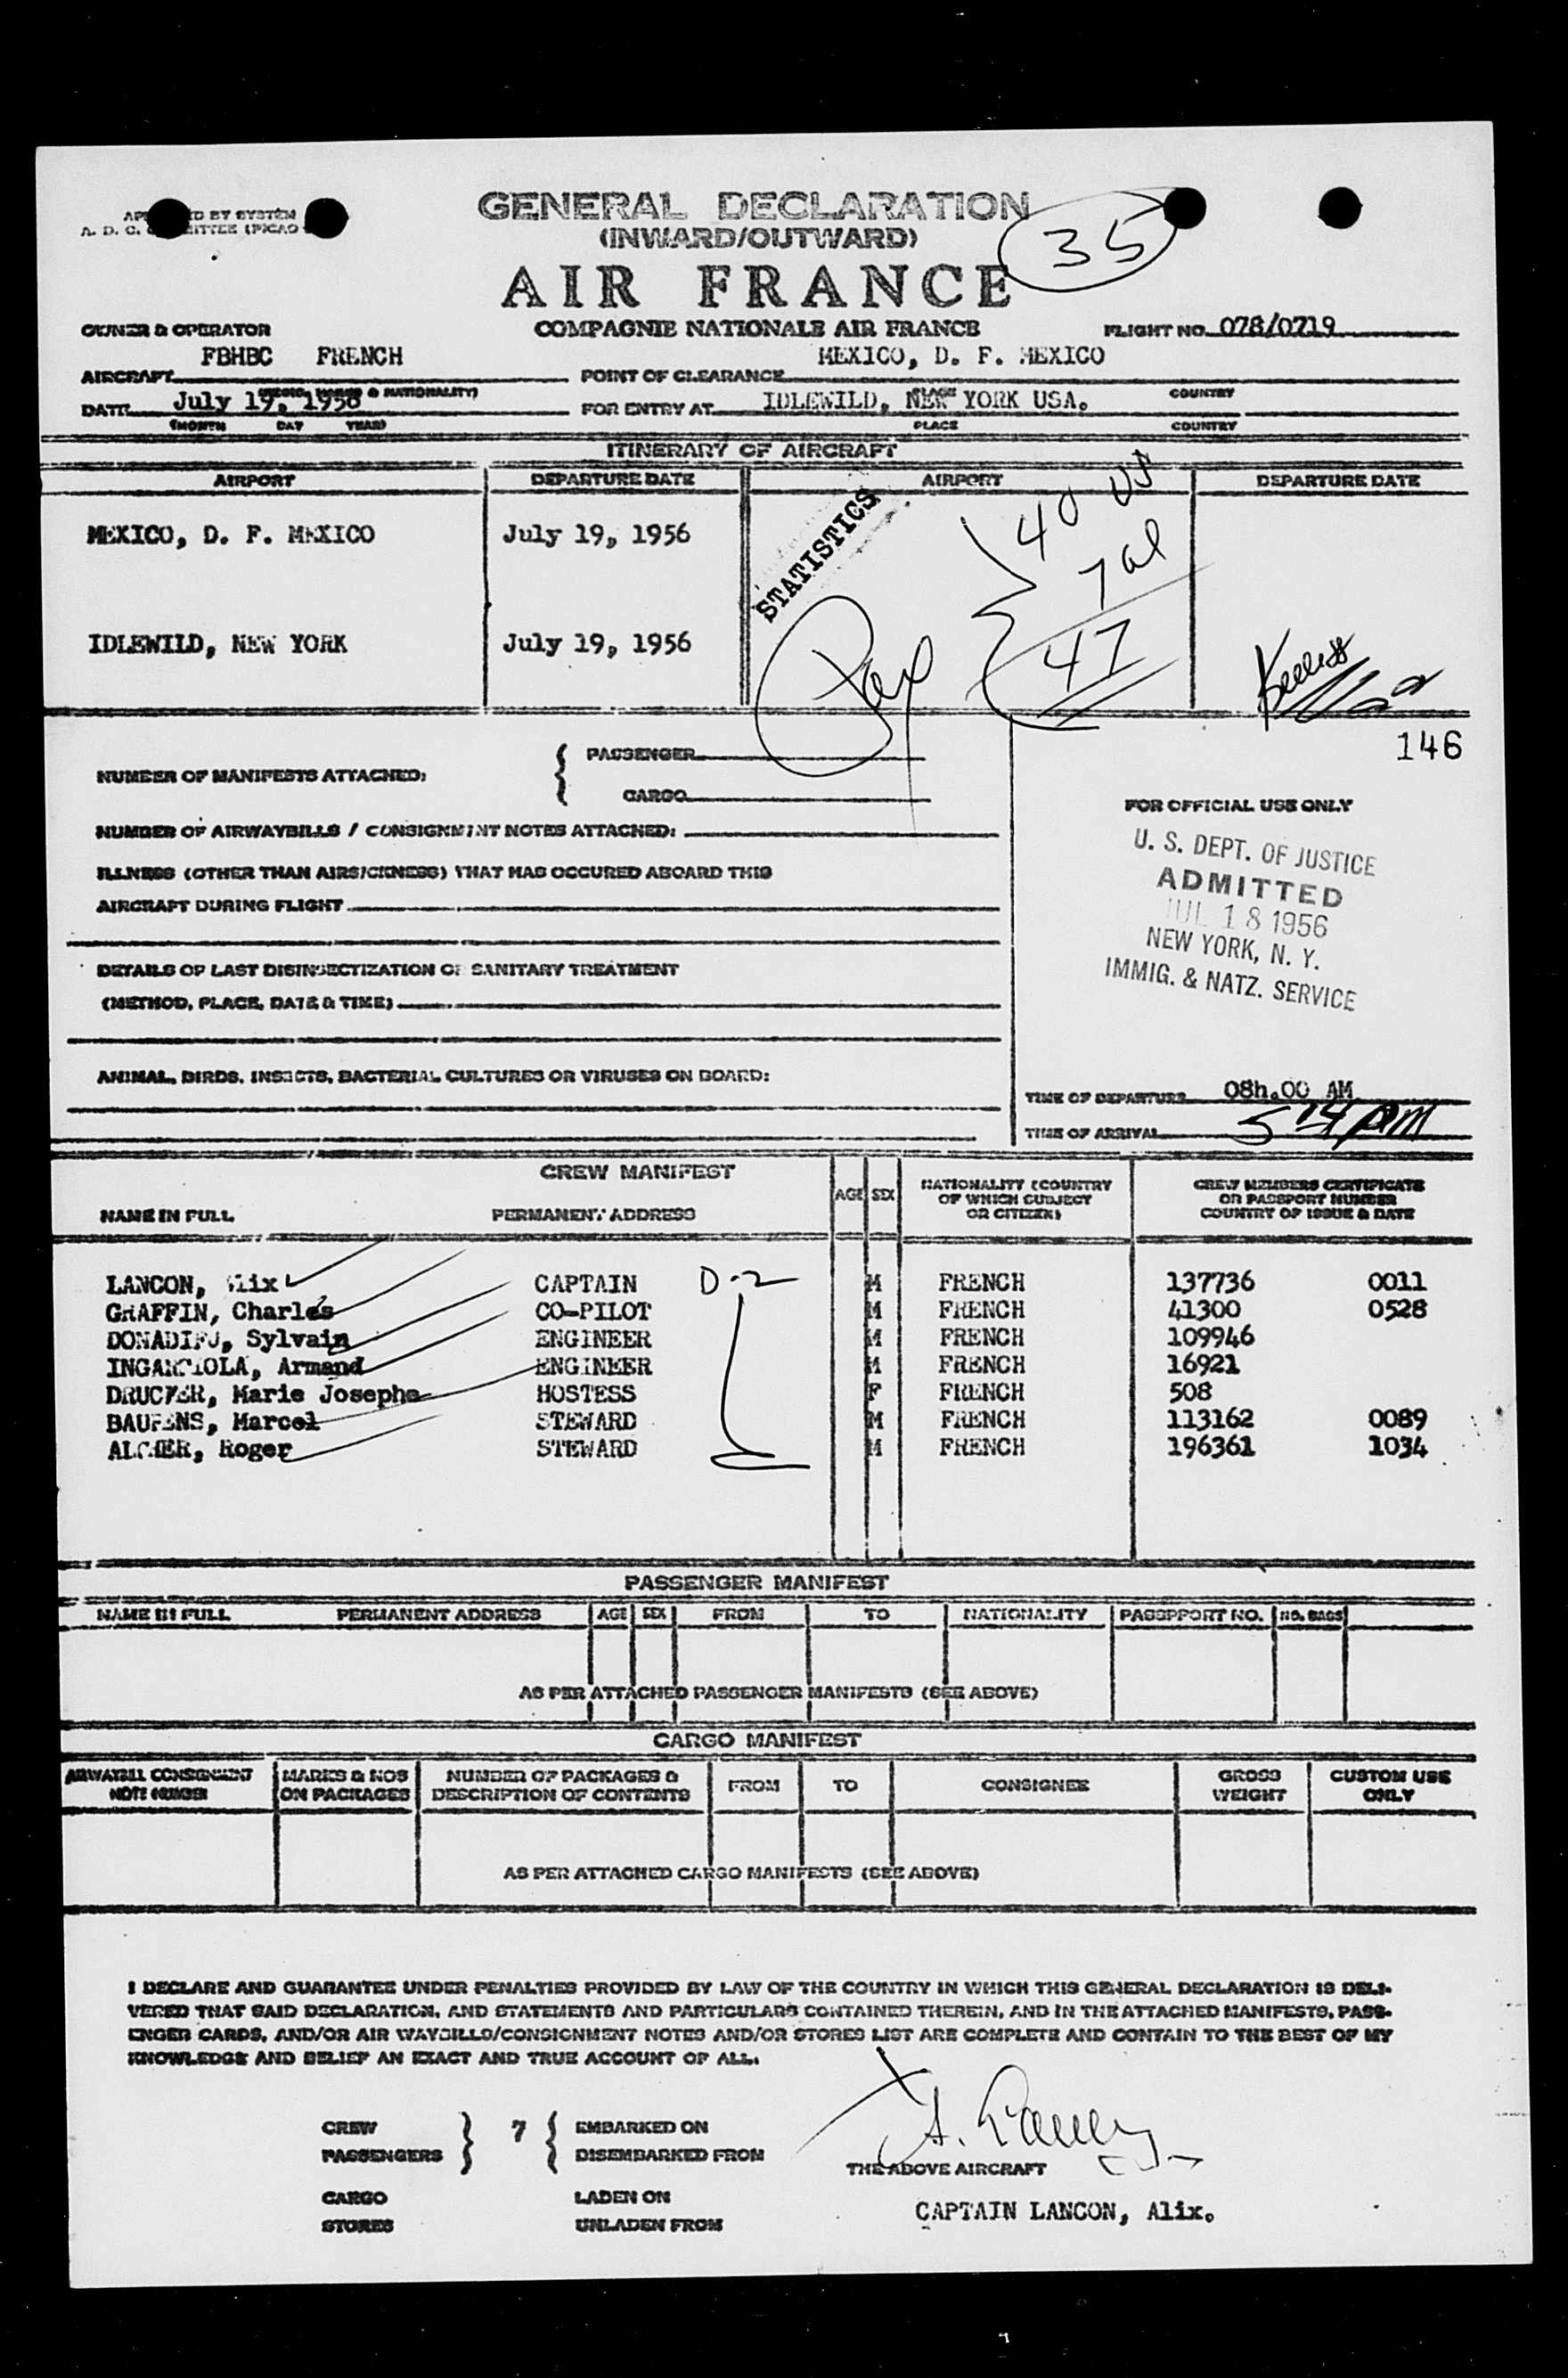 GENERAL DECLARATION
(INWARD/OUTWARD)
35
AIR FRANCE
BY SYSTEM
A. D. C. (PICAO
OWNER & OPERATOR COMPAGNIE NATIONALE AIR FRANCE FLIGHT NO. 078/0719
AIRCRAFT FBHBC FRENCH POINT OF CLEARANCE MEXICO, D. F. MEXICO
& NATIONALITY) PLACE COUNTRY
DATE July 19, 1956 FOR ENTRY AT IDLEWILD, NEW YORK USA.
(MONTH DAY YEAR) PLACE COUNTRY
ITINERARY OF AIRCRAFT
AIRPORT DEPARTURE DATE AIRPORT DEPARTURE DATE
MEXICO, D. F. MEXICO July 19, 1956
IDLEWILD, NEW YORK July 19, 1956
STATISTICS
40 US
7 al
47
Pax
146
NUMBER OF MANIFESTS ATTACHED: { PASSENGER
CARGO
NUMBER OF AIRWAYBILLS / CONSIGNMENT NOTES ATTACHED:
ILLNESS (OTHER THAN AIRSICKNESS) THAT HAS OCCURED ABOARD THIS
AIRCRAFT DURING FLIGHT
DETAILS OF LAST DISINSECTIZATION OR SANITARY TREATMENT
(METHOD, PLACE, DATE & TIME)
ANIMAL, BIRDS, INSECTS, BACTERIAL CULTURES OR VIRUSES ON BOARD:
FOR OFFICIAL USE ONLY
U. S. DEPT. OF JUSTICE
ADMITTED
JUL 18 1956
NEW YORK, N. Y.
IMMIG. & NATZ. SERVICE
TIME OF DEPARTURE 08h.00 AM
TIME OF ARRIVAL 5 24 PM
CREW MANIFEST
NAME IN FULL PERMANENT ADDRESS AGE SEX NATIONALITY (COUNTRY OF WHICH SUBJECT OR CITIZEN) CREW MEMBERS CERTIFICATE OR PASSPORT NUMBER COUNTRY OF ISSUE & DATE
LANCON, Alix CAPTAIN D-2 M FRENCH 137736 0011
GRAFFIN, Charles CO-PILOT M FRENCH 41300 0528
DONADIEU, Sylvain ENGINEER M FRENCH 109946
Armand ENGINEER M FRENCH 16921
DRUCKER, Marie Josephe HOSTESS F FRENCH 508
Marcel STEWARD M FRENCH 113162 0089
Roger STEWARD M FRENCH 196361 1034
PASSENGER MANIFEST
NAME IN FULL PERMANENT ADDRESS AGE SEX FROM TO NATIONALITY PASSPPORT NO. NO. BAGS
AS PER ATTACHED PASSENGER MANIFESTS (SEE ABOVE)
CARGO MANIFEST
AIRWAYBILL CONSIGNMENT NOTE NUMBER MARKS & NOS ON PACKAGES NUMBER OF PACKAGES & DESCRIPTION OF CONTENTS FROM TO CONSIGNEE GROSS WEIGHT CUSTOM USE ONLY
AS PER ATTACHED CARGO MANIFESTS (SEE ABOVE)
I DECLARE AND GUARANTEE UNDER PENALTIES PROVIDED BY LAW OF THE COUNTRY IN WHICH THIS GENERAL DECLARATION IS DELI-
VERED THAT SAID DECLARATION, AND STATEMENTS AND PARTICULARS CONTAINED THEREIN, AND IN THE ATTACHED MANIFESTS, PASS-
ENGER CARDS, AND/OR AIR WAYBILLS/CONSIGNMENT NOTES AND/OR STORES LIST ARE COMPLETE AND CONTAIN TO THE BEST OF MY
KNOWLEDGE AND BELIEF AN EXACT AND TRUE ACCOUNT OF ALL.
CREW } 7 { EMBARKED ON
PASSENGERS DISEMBARKED FROM
THE ABOVE AIRCRAFT
CARGO LADEN ON
STORES UNLADEN FROM
CAPTAIN LANCON, Alix.